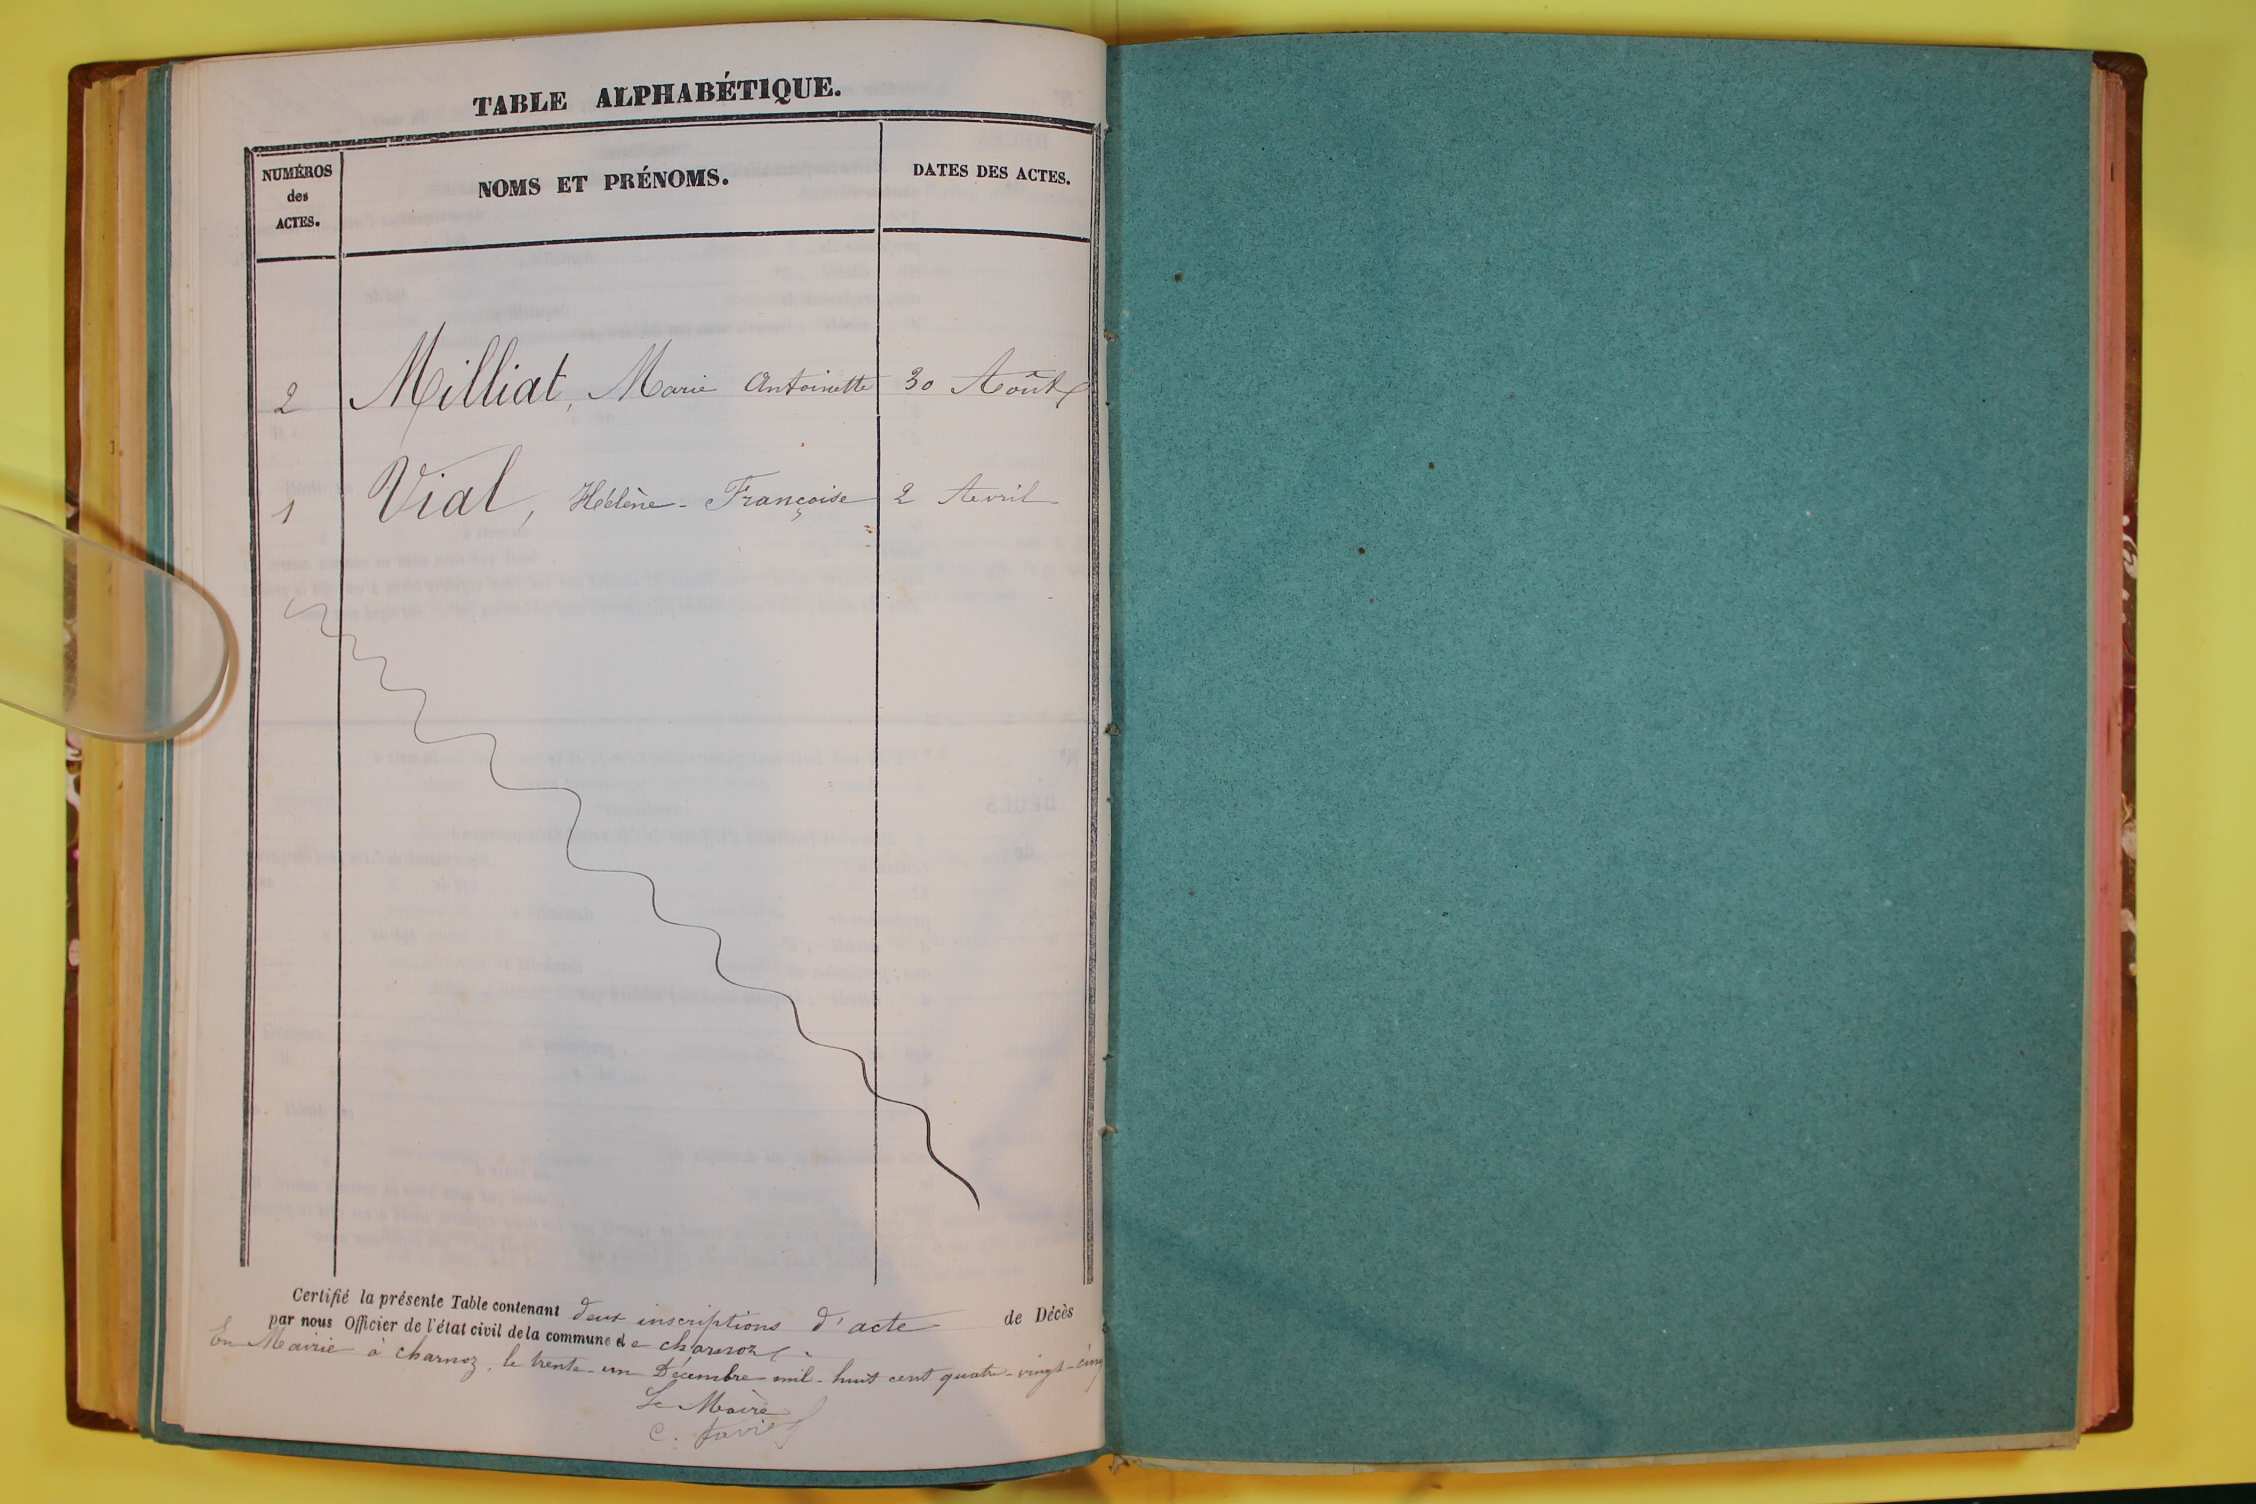 TABLE ALPHABÉTIQUE.
NUMÉROS
des
ACTES.
NOMS ET PRÉNOMS.
DATES DES ACTES.
2 Milliat, Marie Antoinette 30 Août
1 Vial, Hélène-Françoise 2 Avril
Certifié la présente Table contenant deux inscriptions d'acte de Décès
par nous Officier de l'état civil de la commune de charnoz.
En Mairie à charnoz, le trente-un Décembre mil-huit cent quatre-vingt-cinq
Le Maire
C.